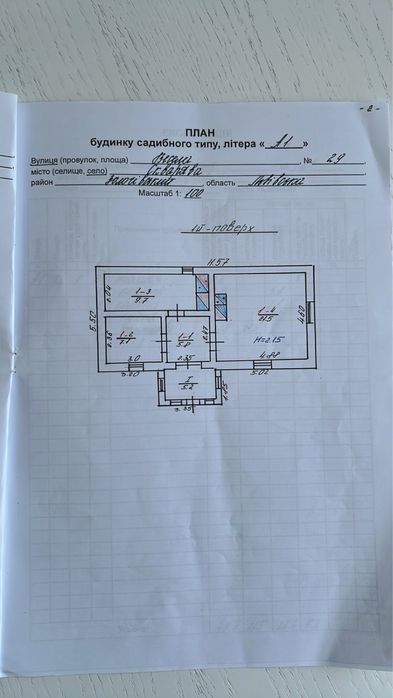 - 2 -
ПЛАН
будинку садибного типу, літера « А1 »
Вулиця (провулок, площа) , № 29
місто (селище, село) Скварява
район Золочівський область Львівська
Масштаб 1: 100
1й - поверх
11.57
2.04
1-3
9.7
5.50
1-4
21.5
4.60
2.36
1-2
7.1
1-1
5.8
2.47
H=2.15
3.0
2.35
4.88
5.02
I
5.2
3.35